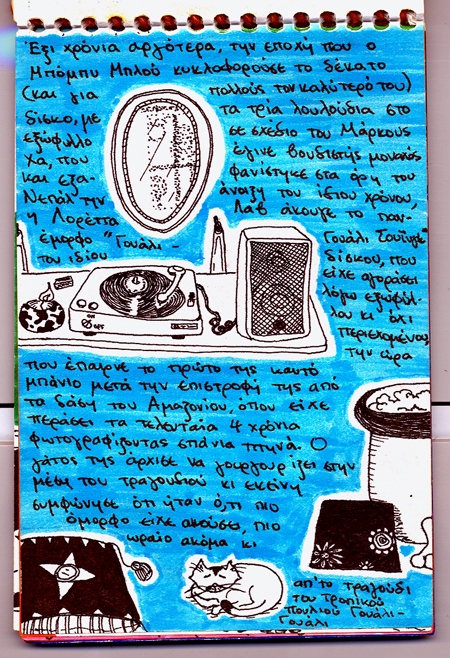 Έξι χρόνια αργότερα, την εποχή που ο
Μπόμπυ Μπλού κυκλοφορούσε το δέκατο
(και για πολλούς τον καλύτερό του)
δίσκο, με τα τρία λουλούδια στο
εξώφυλλο σε σχέδιο του Μάρκους
Χα, που έγινε βουδιστής μοναχός
και εξα- φανίστηκε στα όρη του
Νεπάλ την άνοιξη του ίδιου χρόνου,
η Λορέττα Λάβ άκουγε το παν-
έμορφο "Γουάλι - Γουάλι Σουίνγκ"
του ιδίου δίσκου, που
είχε αγοράσει
λόγω εξωφύλ-
λου κι όχι
περιεχομένου,
την ώρα
που έπαιρνε το πρώτο της καυτό
μπάνιο μετά την επιστροφή της από
τα δάση του Αμαζονίου, όπου είχε
περάσει τα τελευταία 4 χρόνια
φωτογραφίζοντας σπάνια πτηνά. Ο
γάτος της άρχισε να γουργουρίζει στην
μέση του τραγουδιού κι εκείνη
συμφώνησε ότι ήταν ό,τι πιο
όμορφο είχε ακούσει, πιο
ωραίο ακόμα κι
απ'το τραγούδι
του τροπικού
πουλιού Γουάλι-
Γουάλι